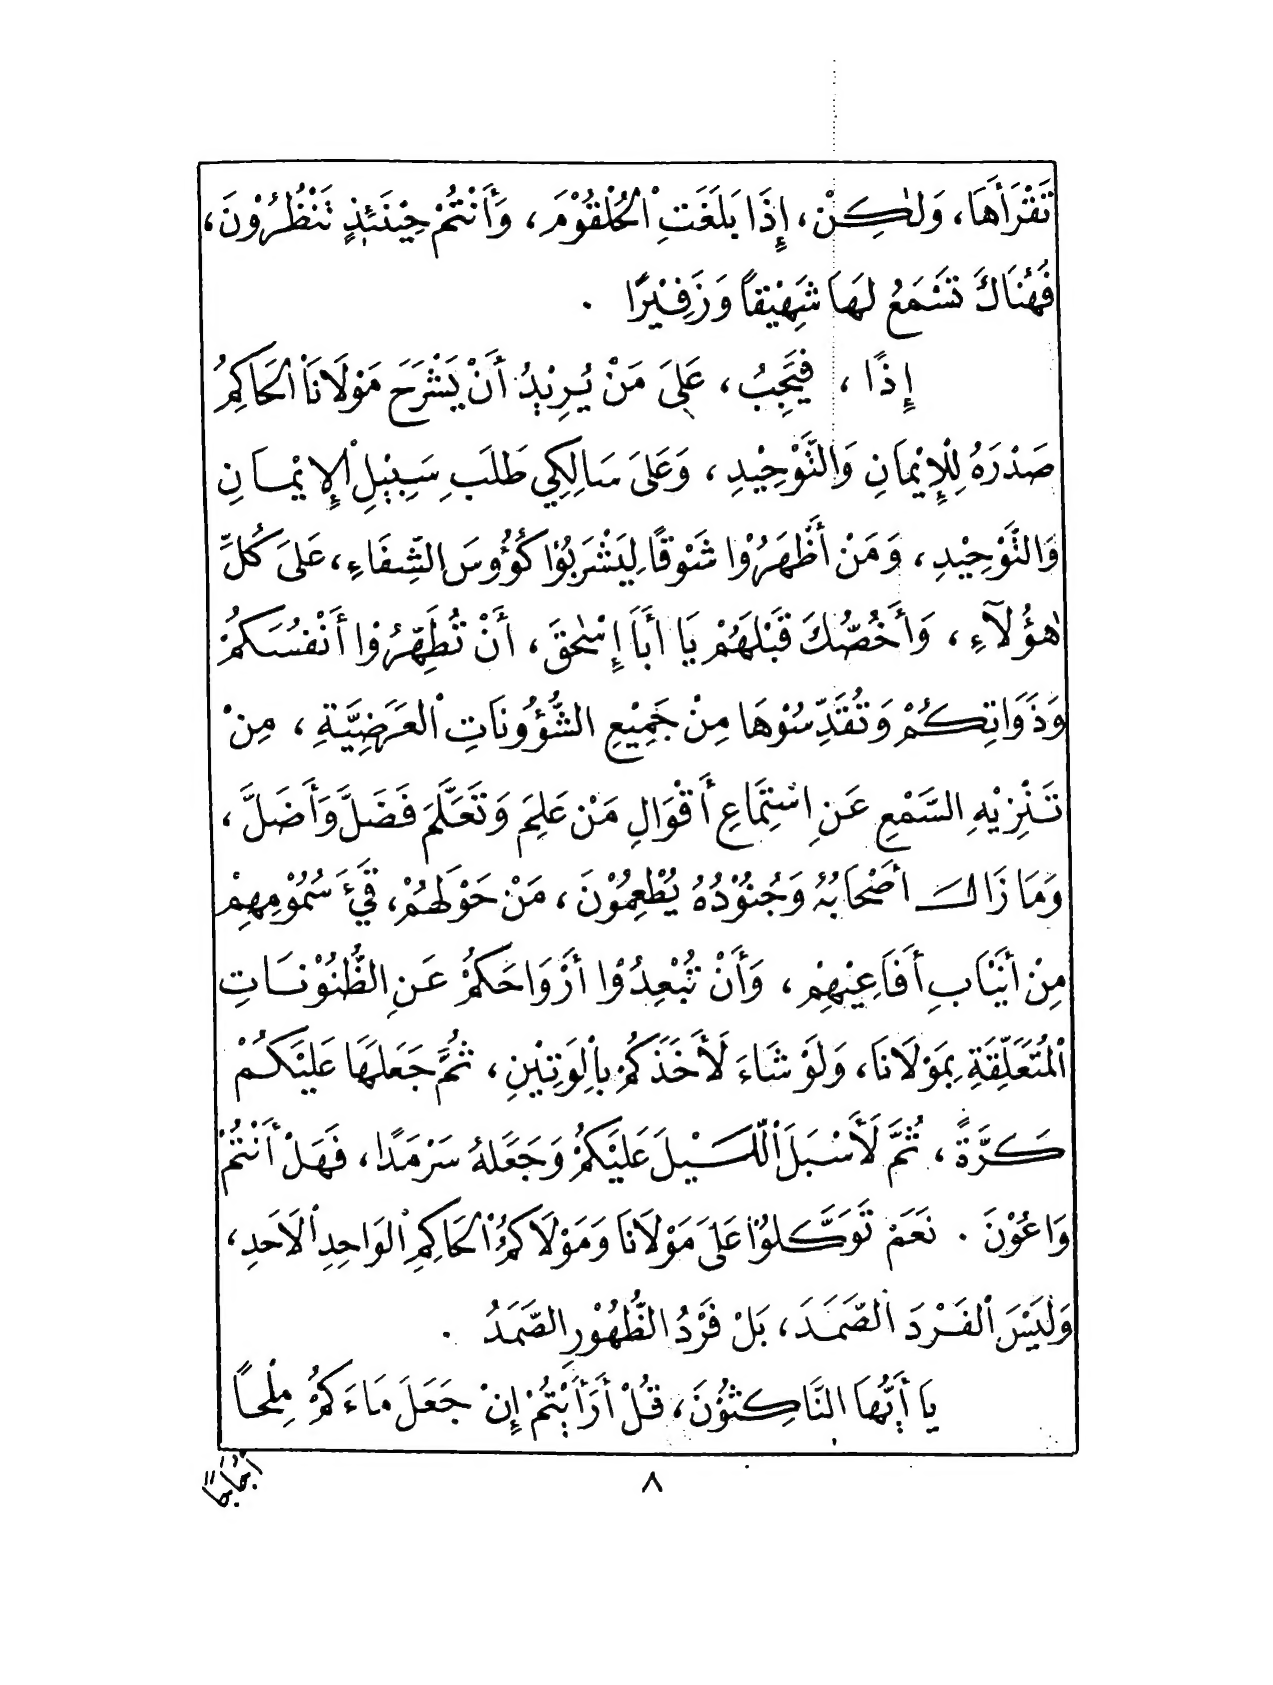 تَقْرَأَهَا، وَلٰكِنْ، إِذَا بَلَغَتِ ٱلْحُلْقُوْمَ، وَأَنْتُمْ حِيْنَئِذٍ تَنْظُرُوْنَ،
فَهُنَاكَ تَسْمَعُ لَهَا شَهِيْقاً وَزَفِيْرًا .
إِذًا ، فَيَجِبُ ، عَلَى مَنْ يُرِيْدُ أَنْ يَشْرَحَ مَوْلَانَا ٱلْحَاكِمُ
صَدْرَهُ لِلْإِيْمَانِ وَالتَّوْحِيْدِ ، وَعَلَى سَالِكِي طَلَبِ سَبِيْلِ ٱلْإِيْمَانِ
وَالتَّوْحِيْدِ ، وَمَنْ أَظْهَرُوْا شَوْقًا لِيَشْرَبُوْا كُؤُوسَ الشِّفَاءِ ، عَلَى كُلِّ
هٰؤُلَآءِ ، وَأَخُصُّكَ قَبْلَهُمْ يَا أَبَا إِسْحٰقَ، أَنْ تُطَهِّرُوْا أَنْفُسَكُمْ
وَذَوَاتِكُمْ وَتُقَدِّسُوْهَا مِنْ جَمِيْعِ الشُّؤُوْنَاتِ ٱلْعَرَضِيَّةِ ، مِنْ
تَنْزِيْهِ السَّمْعِ عَنِ اسْتِمَاعِ أَقْوَالِ مَنْ عَلِمَ وَتَعَلَّمَ فَضَلَّ وَأَضَلَّ ،
وَمَا زَالَ أَصْحَابُهُ وَجُنُوْدُهُ يُطْعِمُوْنَ ، مَنْ حَوْلَهُمْ، قَيْءَ سُمُوْمِهِمْ
مِنْ أَنْيَابِ أَفَاعِيْهِمْ ، وَأَنْ تُبْعِدُوْا أَرْوَاحَكُمْ عَنِ الظُّنُوْنَاتِ
ٱلْمُتَعَلِّقَةِ بِمَوْلَانَا، وَلَوْ شَاءَ لَأَخَذَكُمْ بِٱلْوَتِيْنِ ، ثُمَّ جَعَلَهَا عَلَيْكُمْ
كَرَّةً ، ثُمَّ لَأَسْبَلَ ٱللَّيْلَ عَلَيْكُمْ وَجَعَلَهُ سَرْمَدًا، فَهَلْ أَنْتُمْ
وَاعُوْنَ . نَعَمْ تَوَكَّلُوْا عَلَى مَوْلَانَا وَمَوْلَاكُمُ ٱلْحَاكِمِ ٱلْوَاحِدِ ٱلْأَحَدِ،
وَلَيْسَ ٱلْفَرْدَ ٱلصَّمَدَ، بَلْ فَرْدُ الظُّهُوْرِ الصَّمَدُ .
يَا أَيُّهَا النَّاكِثُوْنَ، قُلْ أَرَأَيْتُمْ إِنْ جَعَلَ مَاءَكُمْ مِلْحاً
٨